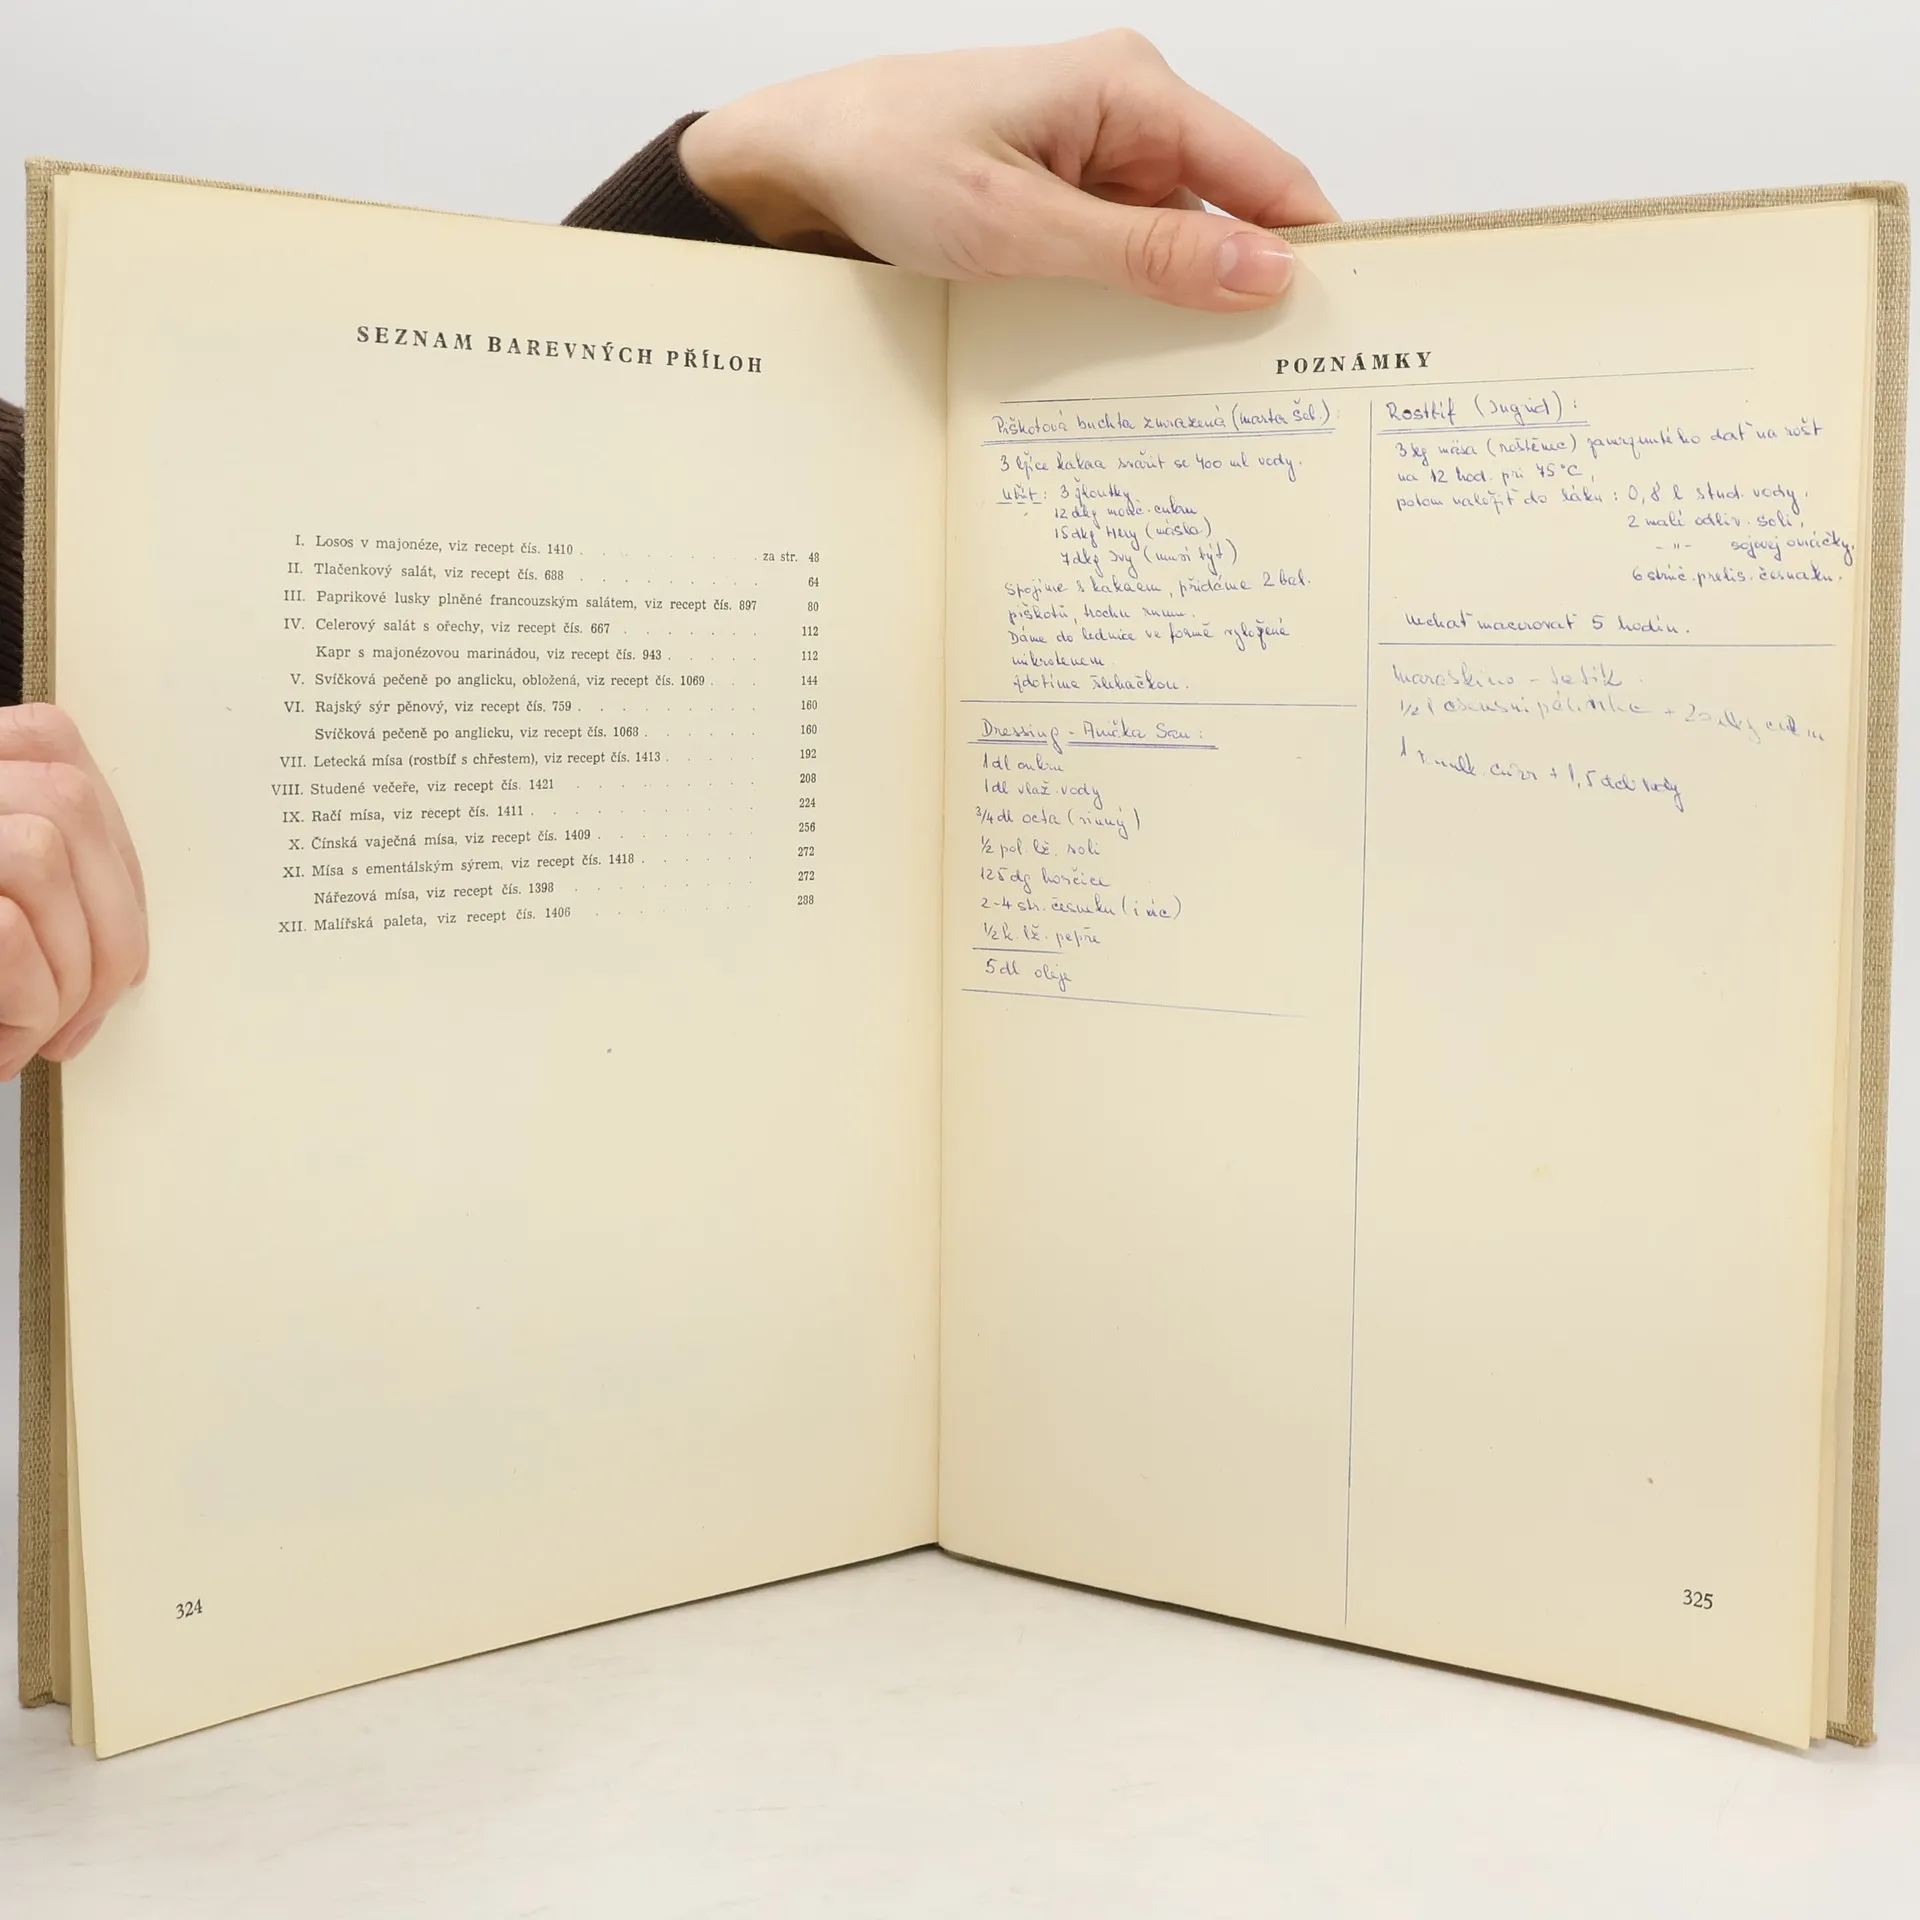 SEZNAM BAREVNÝCH PŘÍLOH
I. Losos v majonéze, viz recept čís. 1410 . . . . . . . . za str. 48
II. Tlačenkový salát, viz recept čís. 688 . . . . . . . . 64
III. Paprikové lusky plněné francouzským salátem, viz recept čís. 897 80
IV. Celerový salát s ořechy, viz recept čís. 667 . . . . . . 112
Kapr s majonézovou marinádou, viz recept čís. 943 . . . . . 112
V. Svíčková pečeně po anglicku, obložená, viz recept čís. 1069 . . . 144
VI. Rajský sýr pěnový, viz recept čís. 759 . . . . . . . . 160
Svíčková pečeně po anglicku, viz recept čís. 1068 . . . . . 160
VII. Letecká mísa (rostbíf s chřestem), viz recept čís. 1413 . . . . . 192
VIII. Studené večeře, viz recept čís. 1421 . . . . . . . . 208
IX. Račí mísa, viz recept čís. 1411 . . . . . . . . . 224
X. Čínská vaječná mísa, viz recept čís. 1409 . . . . . . . 256
XI. Mísa s ementálským sýrem, viz recept čís. 1418 . . . . . 272
Nářezová mísa, viz recept čís. 1398 . . . . . . . . 272
XII. Malířská paleta, viz recept čís. 1406 . . . . . . . 288
324
POZNÁMKY
Piškotová buchta zmrazená (Marta Šeb.):
3 lžíce kakaa svařit se 400 ml vody.
Utřít: 3 žloutky
12 dkg mouč. cukru
15 dkg Hery (másla)
7 dkg Ivy (musí být)
Spojíme s kakaem, přidáme 2 bal.
piškotů, trochu rumu.
Dáme do lednice ve formě vyložené
mikrotenem.
Zdobíme šlehačkou.
Dressing - Anička
1 dl cukru
1 dl vlaž. vody
3/4 dl octa (vinný)
1/2 pol. lž. soli
125 dg hořčice
2-4 str. česneku (i víc)
1/2 k. lž. pepře
5 dl oleje
Rostbíf (Ingrid):
3 kg mäsa (roštěnec) dať na rošt
na 12 hod. pri 75°C,
potom naložiť do láku: 0,8 l stud. vody,
2 malé odliv. soli,
-"- sojovej omáčky,
6 strúč. prelis. česnaku.
Nechať macerovať 5 hodín.
Maraskino -
1/2 l + 20 dkg
1 cukr + 1,5 vody
325